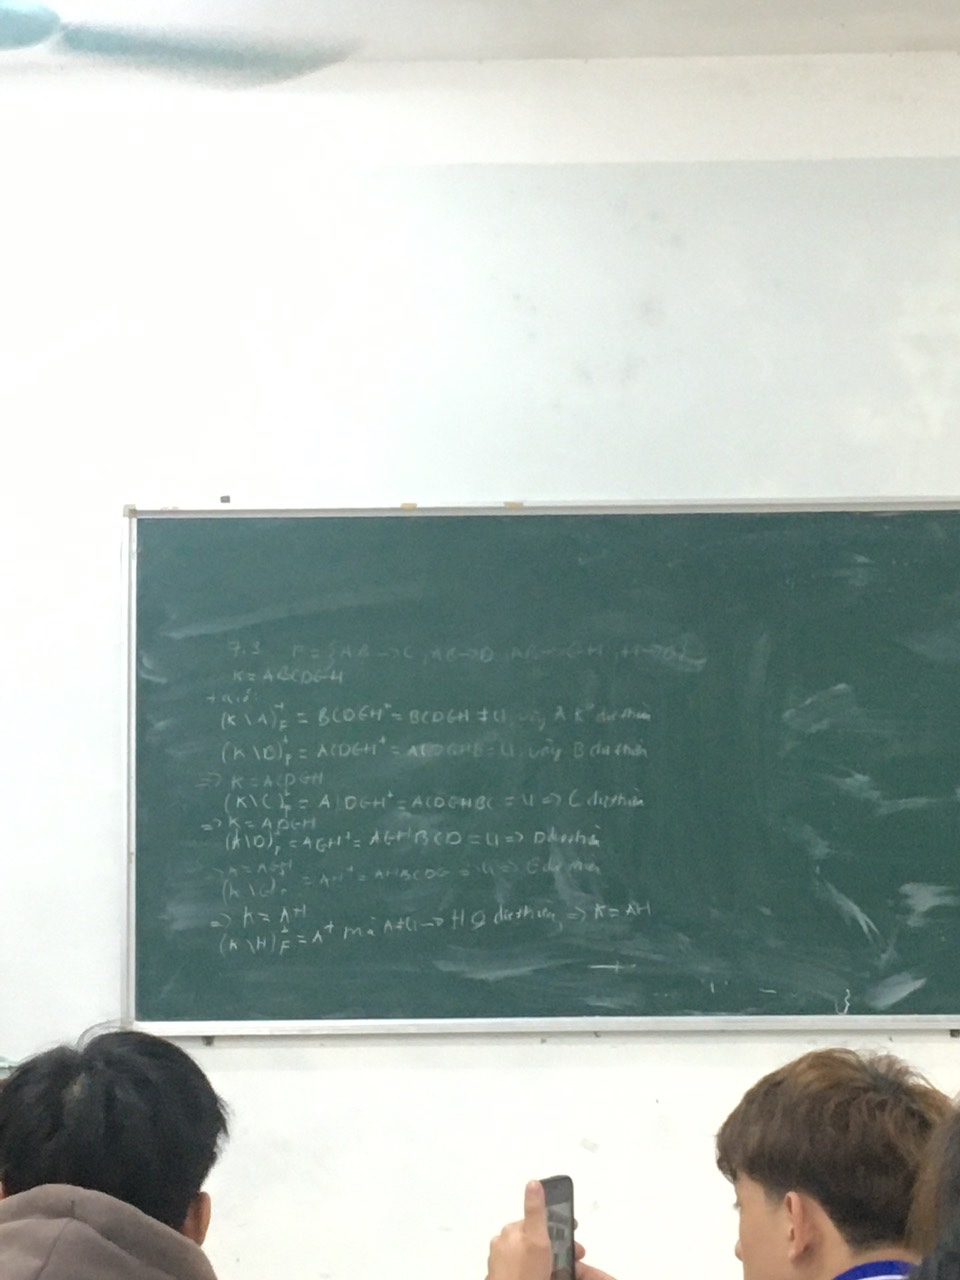 7.3 F = {AB → C, AB → D, AB → GH, H → B}
K = ABCDGH
(K \ A)⁺F = BCDGH⁺ = BCDGH ≠ U vậy A k°
(K \ B)⁺F = ACDGH⁺ = ACDGHB = U vậy B dư thừa
=> K = ACDGH
(K \ C)⁺F = ADGH⁺ = ADGHBC = U => C dư thừa
=> K = ADGH
(K \ D)⁺F = AGH⁺ = AGHBCD = U => D dư thừa
K = AGH
(K \ G)⁺F = AH⁺ = AHBCDG = U => G dư thừa
=> K = AH
(K \ H)⁺F = A⁺ mà A ≠ U → H dư thừa => K = AH